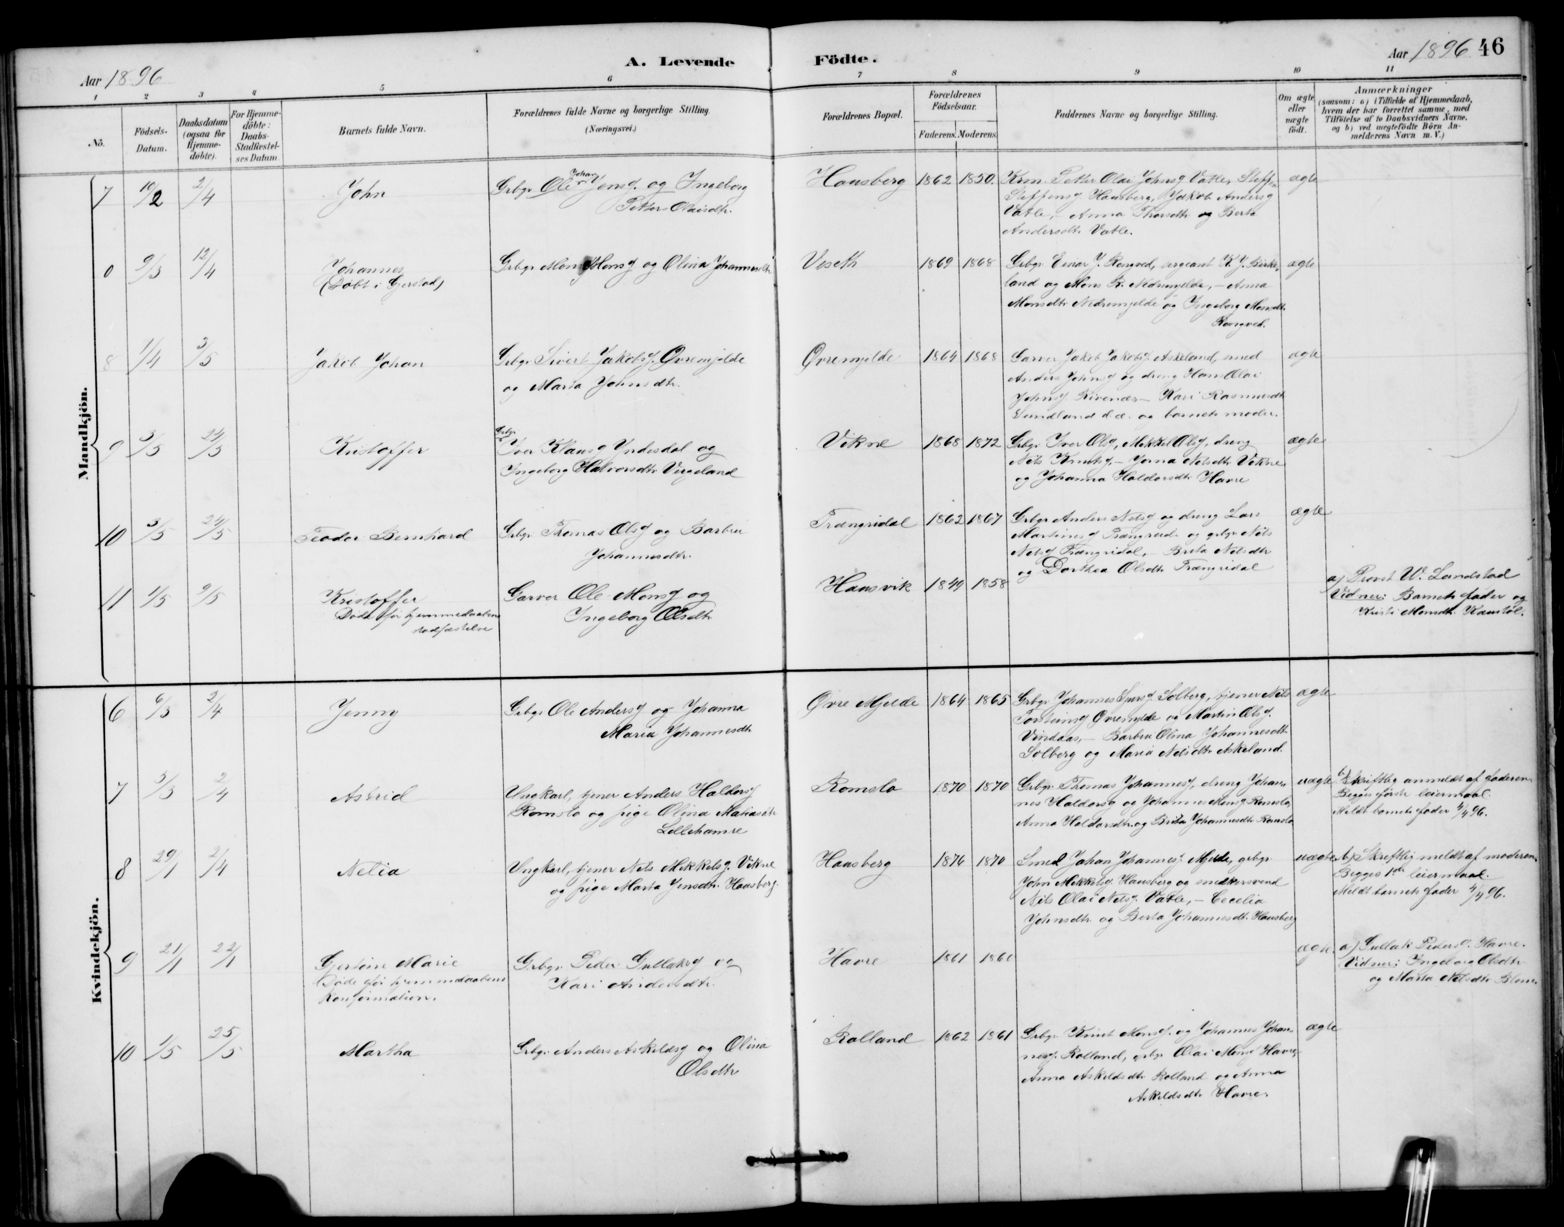 Aar 1896
A. Levende
Födte.
Aar 1896 46
1 2 3 4 5 6 7 8 9 10 11
No.
Födsels-
Datum.
Daabsdatum
(ogsaa for
Hjemme-
döbte).
For Hjemme-
döbte:
Daabs-
Stadfæstel-
ses Datum
Barnets fulde Navn.
Forældrenes fulde Navne og borgerlige Stilling.
(Næringsvei.)
Forældrenes Bopæl.
Forældrenes
Födselsaar.
Faderens. Moderens.
Faddernes Navne og borgerlige Stilling.
Om ægte
eller
uægte
födt.
Anmærkninger
(saasom: a) i Tilfælde af Hjemmedaab,
hvem der har forrettet samme, med
Tilföielse af to Daabsvidners Navne,
og b) ved uegtefödte Börn An-
melderens Navn m. V.)
Mandkjön.
7 10/2 2/4 John
Grbgr Ole Johan Jensg. og Ingeborg
Petter Olaisdtr.
Hausberg 1862 1850
Petter Olai Johnsg Vatle, Steffen
Steffensg Hausberg, Jakob Andersg
Vatle, Anna Thorsdtr og Berta
Andersdtr Vatle.
ægte
0 9/3 12/4 Johannes
(Döbt i Gjerstad)
Grbgr Mons Monsg og Olina Johannesdtr
Viseth 1862 1868
Grbgr Einar J. Rongved, sergeant K. J. Birke-
land og Mons K. Nedremjelde, - Anna
Monsdtr Nedremjelde og Ingeborg Monsdtr
Rongved.
ægte
8 1/4 3/5 Jakob Johan
Grbgr Sivert Jakobsg. Øvremjelde
og Marta Johnsdtr.
Øvremjelde 1864 1868
Garver Jakob Jakobsg Askeland, smed
Anders Johnsg og dreng Hans Olai
Johnsg Rivenes - Kari Rasmusdtr
Sundland d.æ. og barnets moder.
ægte
9 3/3 24/5 Kristoffer
Grbgr
Iver Klausg Yndesdal og
Ingeborg Halvorsdtr Vegeland
Vikne 1868 1872
Grbgr Iver Olsg, Mikkel Olsg, dreng
Nils Knutsg, - Jorna Nilsdtr Vikne
og Johanna Haldorsdtr Havre
ægte
10 3/5 24/5 Teodor Bernhard
Grbgr Thomas Olsg og Barbru
Johannesdtr.
Trængridal 1862 1867
Grbgr Anders Nilsg og dreng Lars
Martinusg Trængereid og grbgr Nils
Nilsg Trængridal, - Brita Nilsdtr
og Dorthea Olsdtr Trængridal
ægte
11 1/5 9/5 Kristoffer
Döde før hjemmedaabens
stadfæstelse
Garver Ole Monsg og
Ingeborg Olsdtr
Hausvik 1849 1858
a) Provst W. Landstad
Vidner: Barnets fader og
Kristi Monsdtr Kaastöl.
Kvindekjön.
6 6/3 2/4 Jenny
Grbgr Ole Andersg og Johanna
Maria Johannesdtr
Øvre Mjelde 1864 1865
Grbgr Johannes Sjursg Solberg, tjener Nils
Øvremjelde og Martin Olsg.
Vindaas, - Barbru Olina Johannesdtr
Solberg og Maria Nilsdtr Askeland.
ægte
7 3/3 2/4 Astrid
Ungkarl, tjener Anders Haldorsg
Romslo og pige Olina Matiasdtr
Lillehamre
Romslo 1870 1870
Grbgr Thomas Johannesg, dreng Johan-
nes Haldorsg og Johannes Monsg Romslo,
Anna Haldorsdtr og Brita Johannesdtr Romslo
uægte
b) Skriftlig anmeldt af faderen
Begges første leiermaal.
Meldt barnets fader 4/4 96.
8 29/1 2/4 Nelia
Ungkarl, tjener Nils Mikkelsg Vikne
og pige Marta Jensdtr Hausberg.
Hausberg 1876 1870
Smed Johan Johannesg Mjelde, grbgr
John Mikkelsg Hausberg og snedkersvend
Nils Olai Nilsg Vatle, - Cecelia
Johnsdtr og Berta Johannesdtr Hausberg
uægte
b) Skriftlig meldt af moderen
Begges 1ste leiermaal.
Meldt barnets fader 4/4 96.
9 21/1 22/1 Gjertine Marie
(Döde før hjemmedaabens
konfirmation.
Grbgr Peder Gullaksg og
Kari Andersdtr.
Havre 1861 1860
ægte
a) Gullak Pedersg. Havre.
Vidner: Ingeborg Olsdtr
og Marta Nilsdtr Blom.
10 1/5 25/5 Martha
Grbgr Anders Askildsg og Olina
Olsdtr
Rolland 1862 1861
Grbgr Knut Monsg. og Johannes Johan-
nesg. Rolland, grbgr Olai Monsg Havre,
Anna Askildsdtr Rolland og Anna
Askildsdtr Havre.
ægte